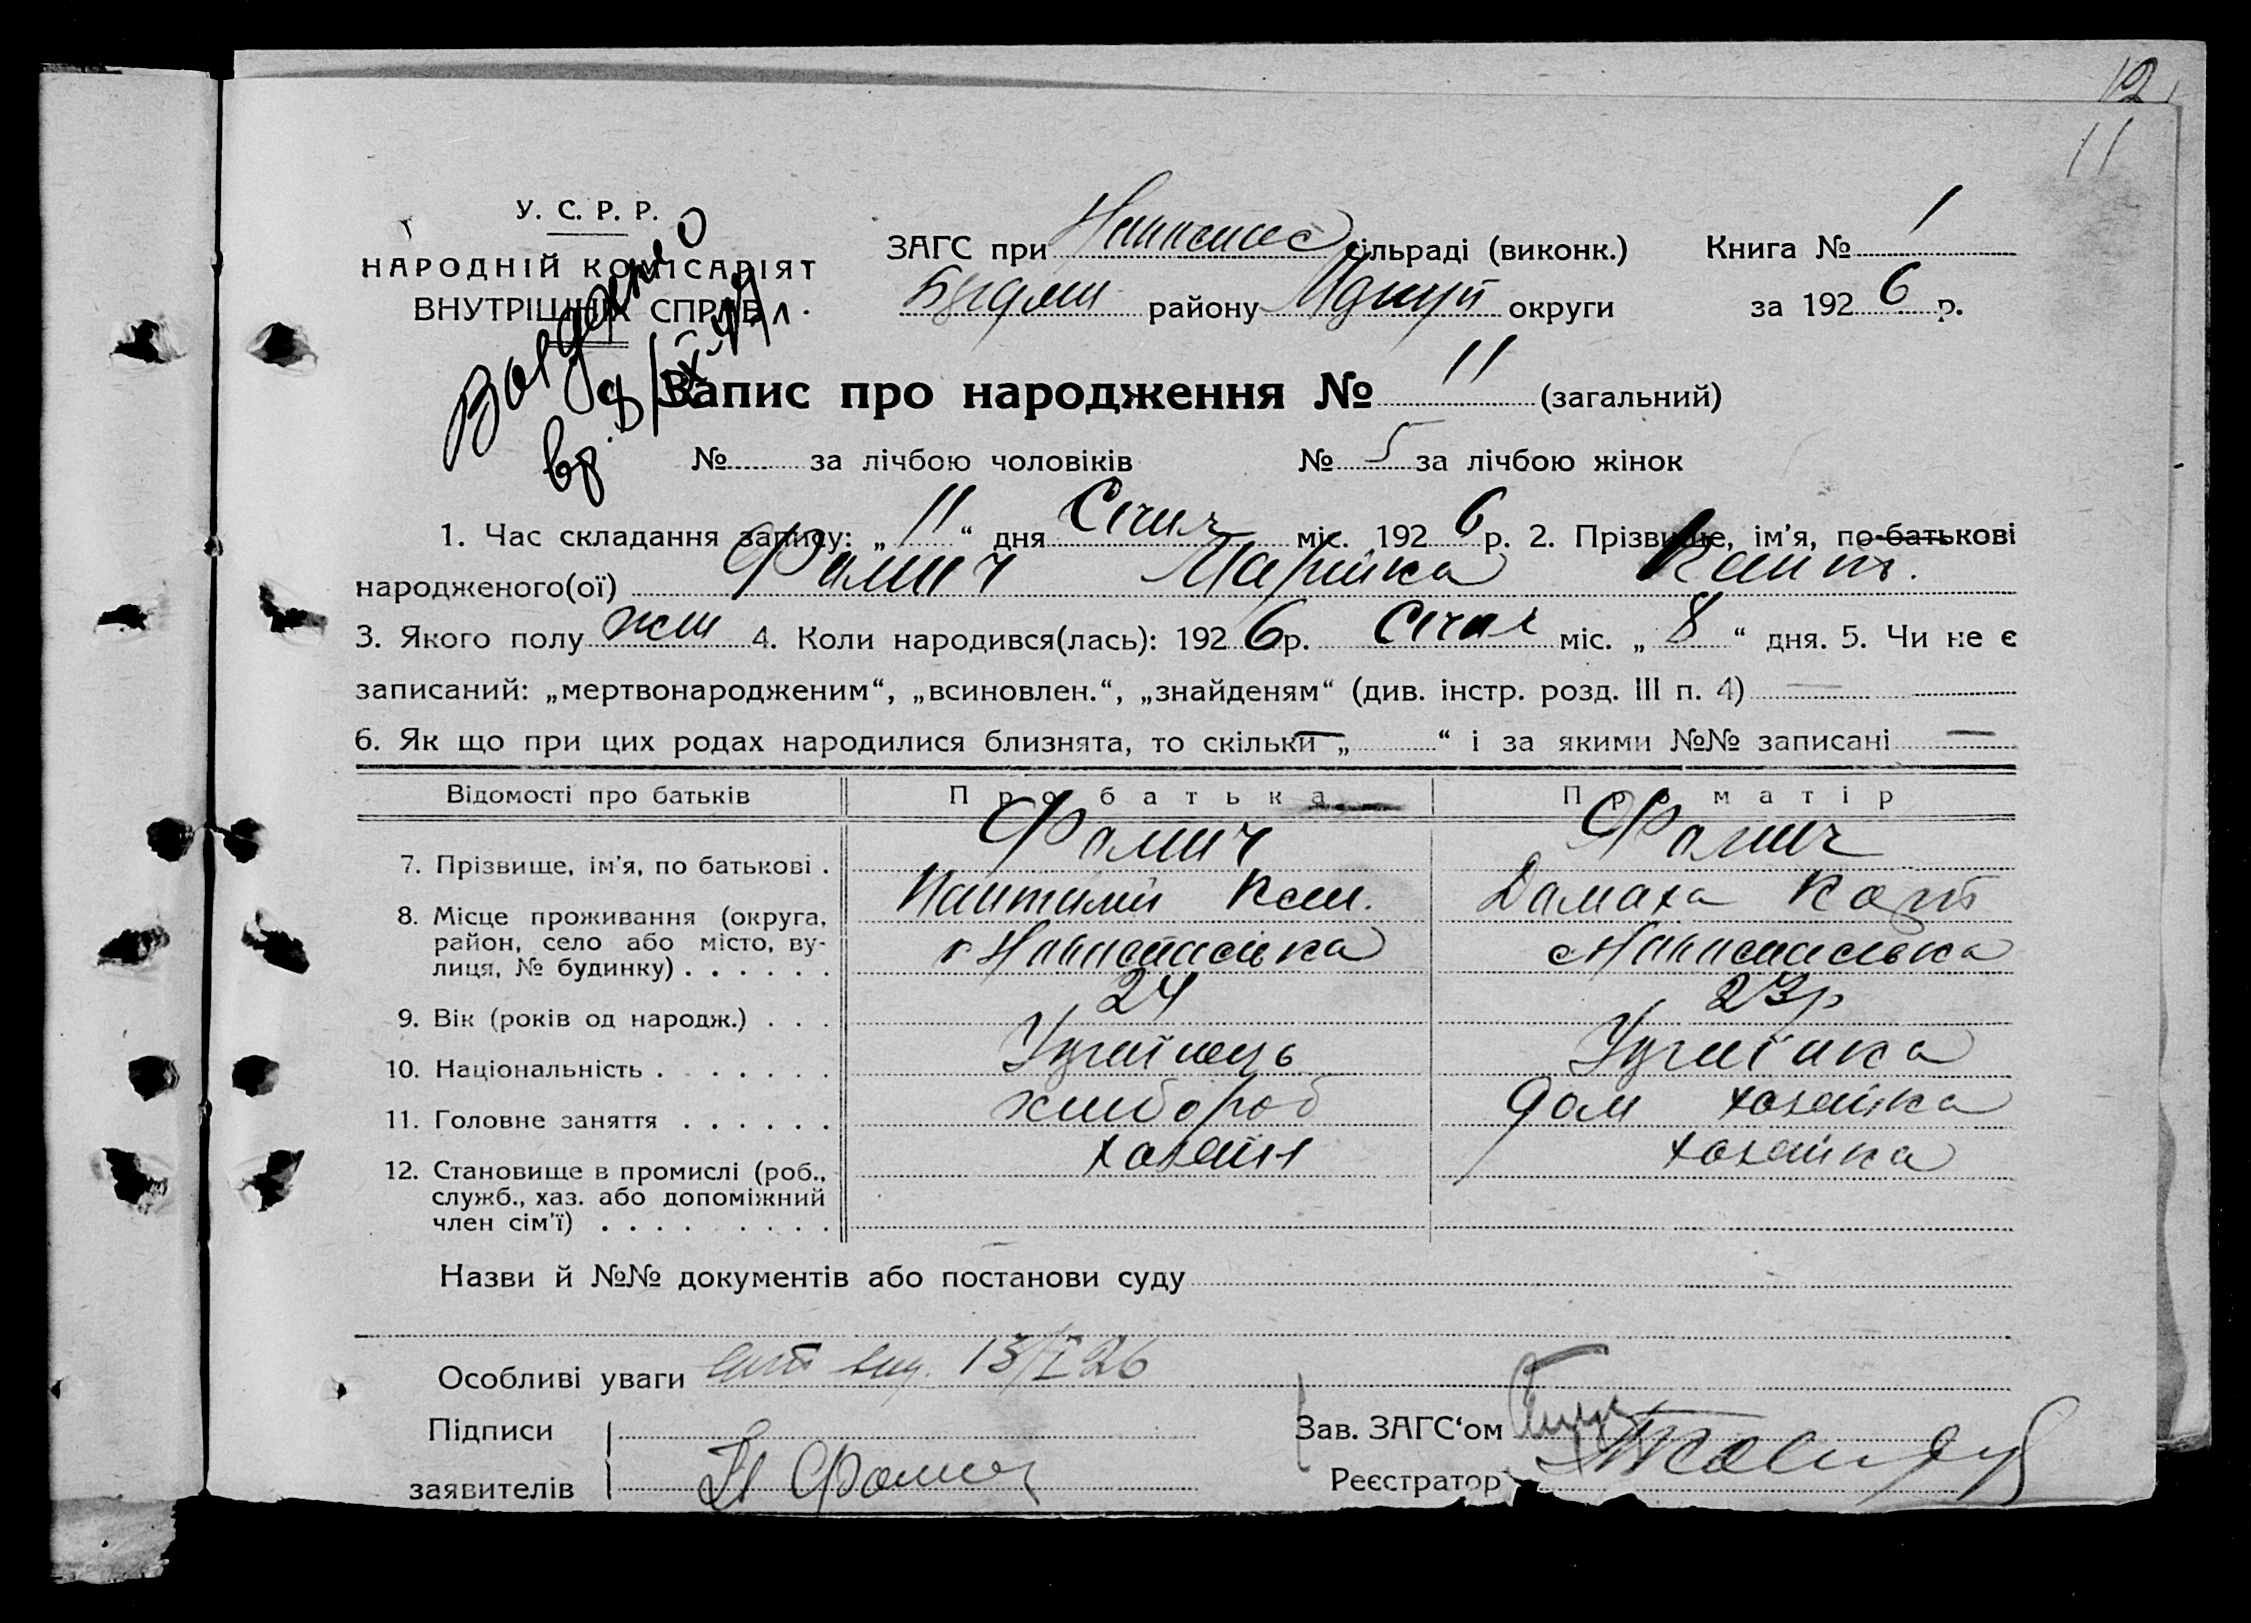 12
11
У. С. Р. Р.
НАРОДНІЙ КОМІСАРІЯТ
ВНУТРІШНІХ СПРАВ
ЗАГС при сільраді (виконк.) Книга № 1
району округи за 1926 р.
Запис про народження № 11 (загальний)
№ за лічбою чоловіків № 5 за лічбою жінок
1. Час складання запису: „11“ дня Січня міс. 1926 р. 2. Прізвище, ім'я, по-батькові
народженого(ої) Фомич Марійка Пант.
3. Якого полу жін 4. Коли народився(лась): 1926 р. Січня міс. „8“ дня. 5. Чи не є
записаний: „мертвонародженим“, „всиновлен.“, „знайденям“ (див. інстр. розд. III п. 4) —
6. Як що при цих родах народилися близнята, то скільки „—“ і за якими №№ записані —
Відомості про батьків Про батька Про матір
7. Прізвище, ім'я, по батькові . Фомич Фомич
8. Місце проживання (округа,
район, село або місто, ву-
лиця, № будинку) . . . . . .
9. Вік (років од народж.) . . . 24 23р
10. Національність . . . . . . . Українець Українка
11. Головне заняття . . . . . . хлібороб дом хозяйка
12. Становище в промислі (роб., хозяїн хозяйка
служб., хаз. або допоміжний
член сім'ї) . . . . . . . . .
Назви й №№ документів або постанови суду
Особливі уваги 13/I 26
Підписи Зав. ЗАГС‘ом
заявителів П Фомич Реєстратор